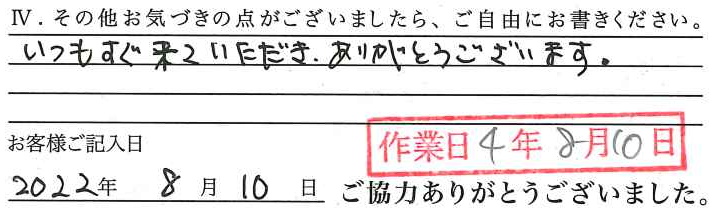 Ⅳ．その他お気づきの点がございましたら、ご自由にお書きください。
いつもすぐ来ていただき、ありがとうございます。
お客様ご記入日
作業日4年8月10日
2022年 8月10日 ご協力ありがとうございました。